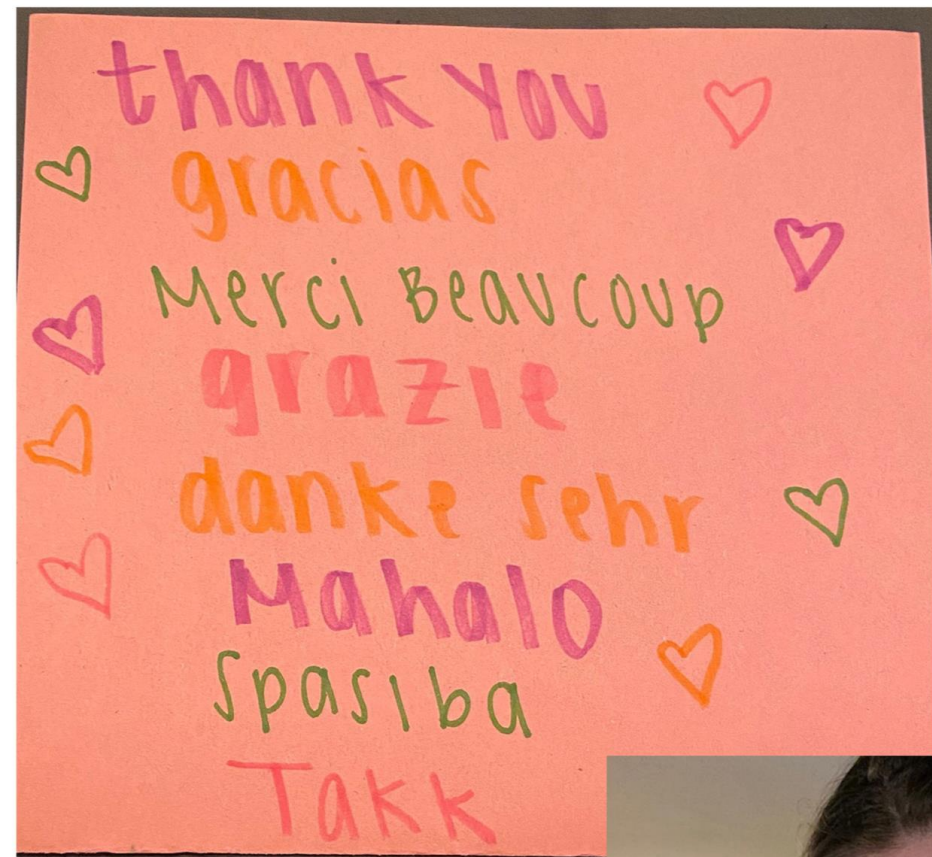 thank you
gracias
Merci Beaucoup
grazie
danke sehr
Mahalo
Spasiba
Takk